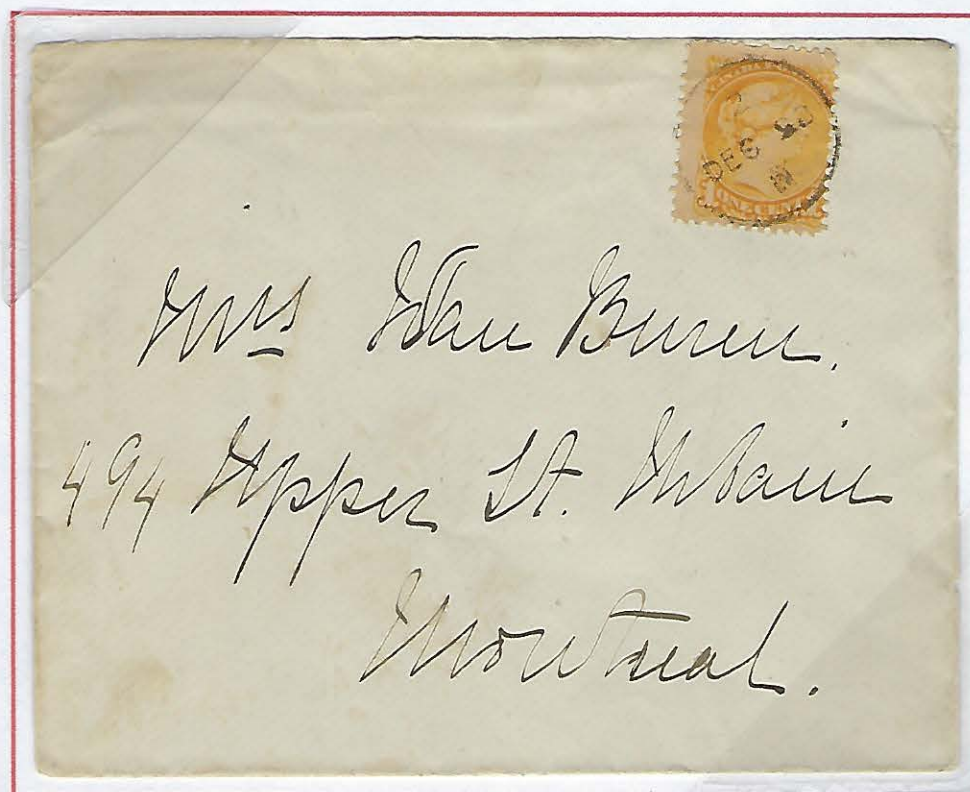 DEC
ONE CENT
Mrs Van Buren.
494 Upper St. Urbain
Montreal.